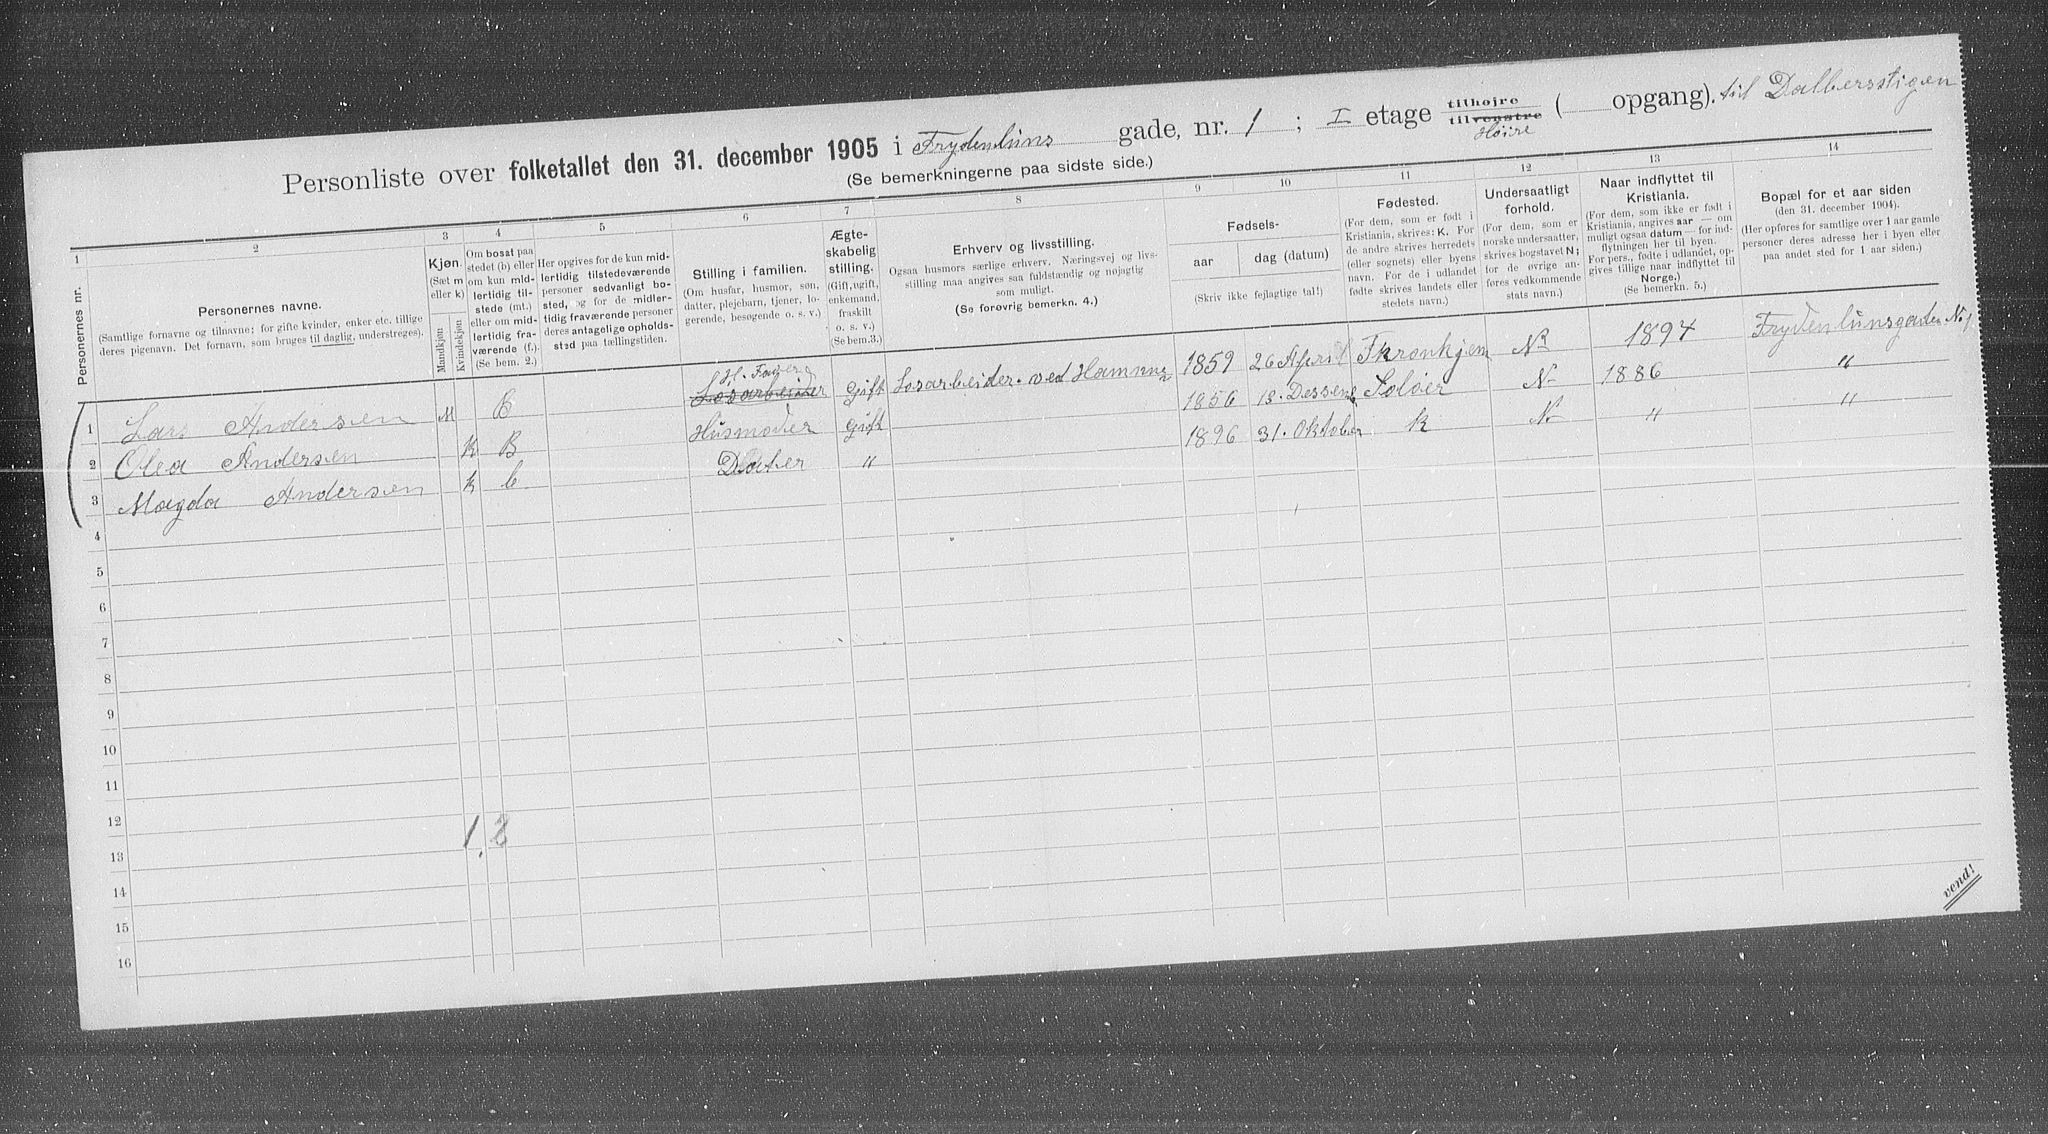 Personliste over folketallet den 31. december 1905 i Frydenluns gade, nr. 1 ; I etage tilhøjre tilvenstre Høire ( opgang). til Dalbersstigen
(Se bemerkningerne paa sidste side.)
1 2 3 4 5 6 7 8 9 10 11 12 13 14
Personernes nr.
Personernes navne.
(Samtlige fornavne og tilnavne; for gifte kvinder, enker etc. tillige
deres pigenavn. Det fornavn, som bruges til daglig, understreges).
Kjøn.
(Sæt m
eller k)
Mandkjøn
Kvindekjøn
Om bosat paa
stedet (b) eller
om kun mid-
lertidig til-
stede (mt.)
eller om mid-
lertidig fra-
værende (f.).
(Se bem. 2.)
Her opgives for de kun mid-
lertidig tilstedeværende
personer sedvanligt bo-
sted, og for de midler-
tidig fraværende personer
deres antagelige opholds-
sted paa tællingstiden.
Stilling i familien.
(Om husfar, husmor, søn,
datter, plejebarn, tjener, lo-
gerende, besøgende o. s. v.)
Ægte-
skabelig
stilling.
(Gift, ugift,
enkemand,
fraskilt
o. s. v.)
(Se bem.3.)
Erhverv og livsstilling.
Ogsaa husmors særlige erhverv. Næringsvej og livs-
stilling maa angives saa fuldstændig og nøjagtig
som muligt.
(Se forøvrig bemerkn. 4.)
Fødsels-
aar
dag (datum)
(Skriv ikke fejlagtige tal!)
Fødested.
(For dem, som er født i
Kristiania, skrives: K. For
de andre skrives herredets
(eller sognets) eller byens
navn. For de i udlandet
fødte skrives landets eller
stedets navn.)
Undersaatligt
forhold.
(For dem, som er
norske undersaatter,
skrives bogstavet N;
for de øvrige an-
føres vedkommende
stats navn.)
Naar indflyttet til
Kristiania.
(For dem, som ikke er født i
Kristiania, angives aar — om
muligt ogsaa datum — for ind-
flytningen her til byen.
For pers., fødte i udlandet, op-
gives tillige naar indflyttet til
Norge.)
(Se bemerkn. 5.)
Bopæl for et aar siden
(den 31. december 1904).
(Her opføres for samtlige over 1 aar gamle
personer deres adresse her i byen eller
paa andet sted for 1 aar siden.)
1 Lars Andersen M B Losarbeider Gift Losarbeider ved Hamnne 1859 26 April Tkronhjem N 1894 Frydenlunsgaden No 1
2 Olea Andersen K B Husmoder Gift 1856 18. Dessenb Soløer N 1886 "
3 Magda Andersen K b Dater " 1896 31. Oktober K N " "
4
5
6
7
8
9
10
11
12
13
14
15
16
vend!